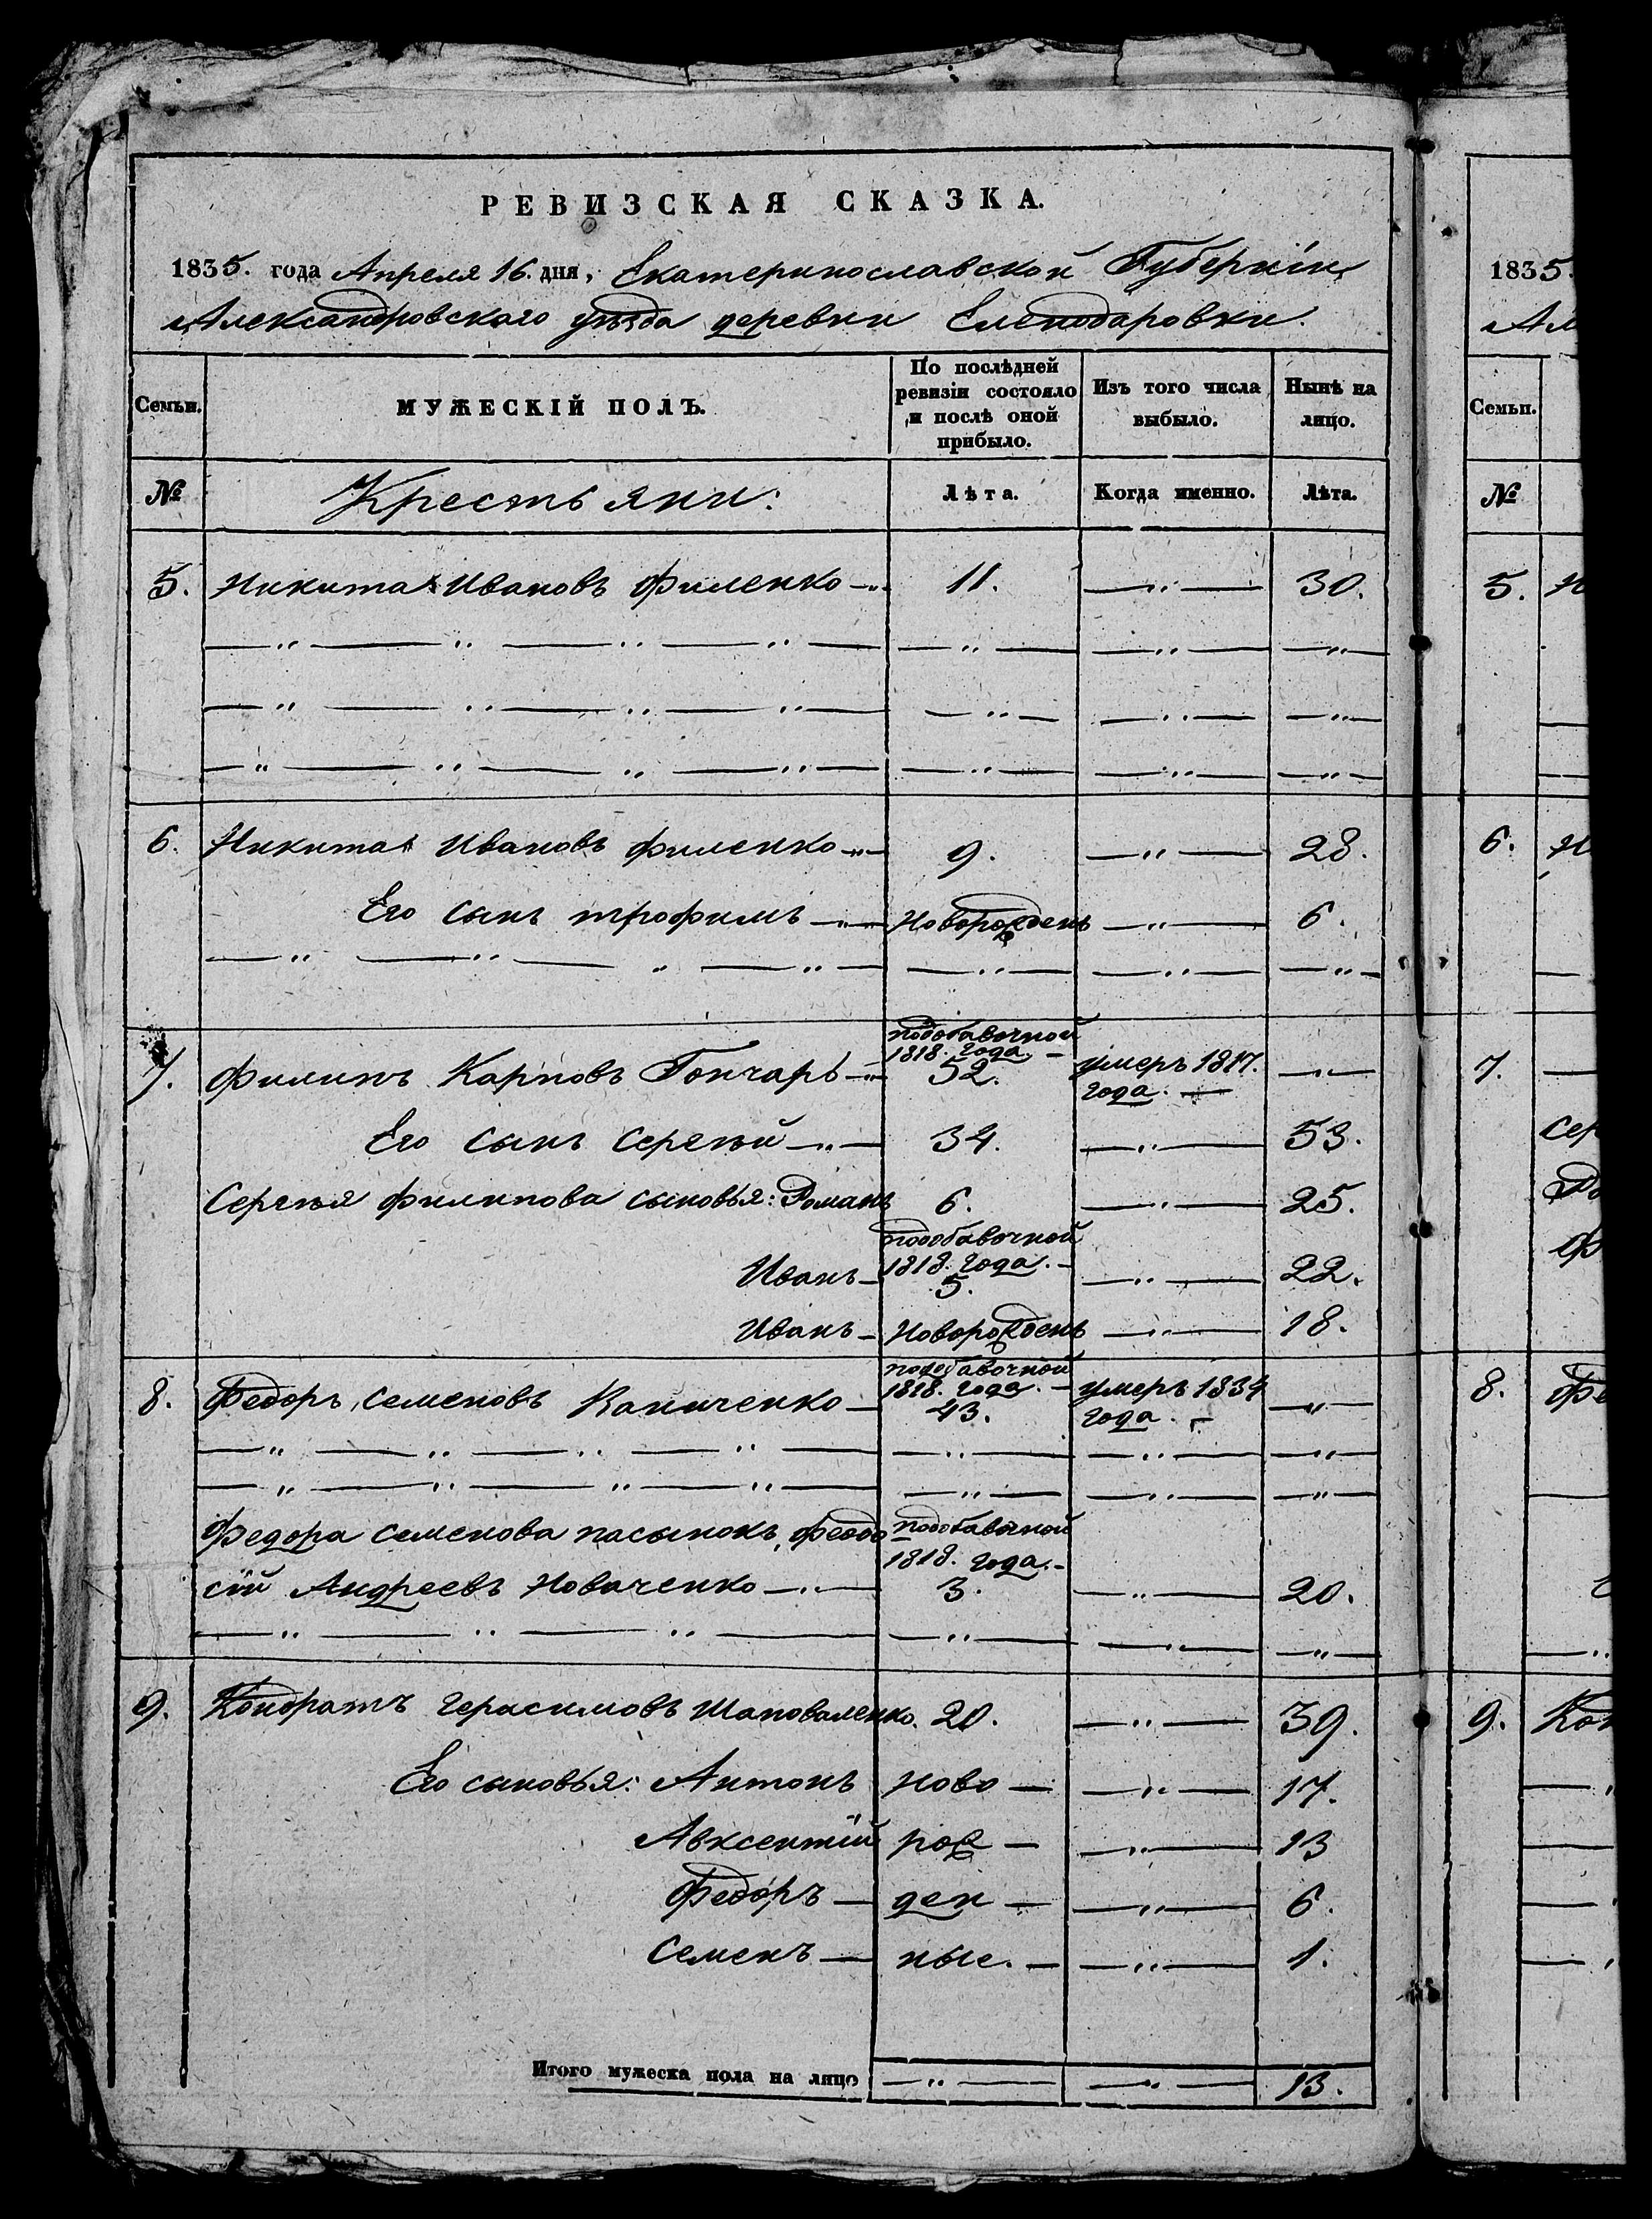 РЕВИЗСКАЯ СКАЗКА.
1835. года Апреля 16. дня, Екатеринославской Губерніи
Александровского уѣзда деревни Еленодаровки.
Семьи. МУЖЕСКІЙ ПОЛЪ. По послѣдней ревизіи состояло и послѣ оной прибыло. Изъ того числа выбыло. Нынѣ на лицо.
№ Крестьяни: Лѣта. Когда именно. Лѣта.
5. Никита Ивановъ Филенко 11. 30.
6. Никита Ивановъ Филенко 9. 28.
Его сынъ трофимъ Новорожденъ 6.
7. Филипъ Карповъ Гончаръ подобавочной 1818. Года. 52. умеръ 1817. года.
Его сынъ Сергѣй 34. 53.
Сергѣя Филипова сыновья: Романъ 6. 25.
Иванъ подобавочной 1818. Года. 5. 22.
Иванъ Новорожденъ 18.
8. Федоръ Семеновъ подобавочной 1818. Года. 43. умеръ 1834 года.
Федора Семенова пасынокъ, Феодо
сій Андреевъ Новаченко подобавочной 1818. Года. 3. 20.
9. Кондратъ Герасимовъ Шаповаленко. 20. 39.
Его сыновья: Антонъ ново 17.
Авксентій рож 13
Федоръ ден 6.
Семенъ ные. 1.
Итого мужеска пола на лицо 13.
1835.
Семьи.
№
5.
6.
7.
8.
9.